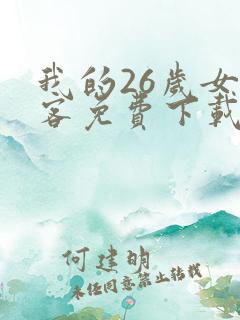 我的26歲女
客免費下載
何建明
未经同意禁止转载